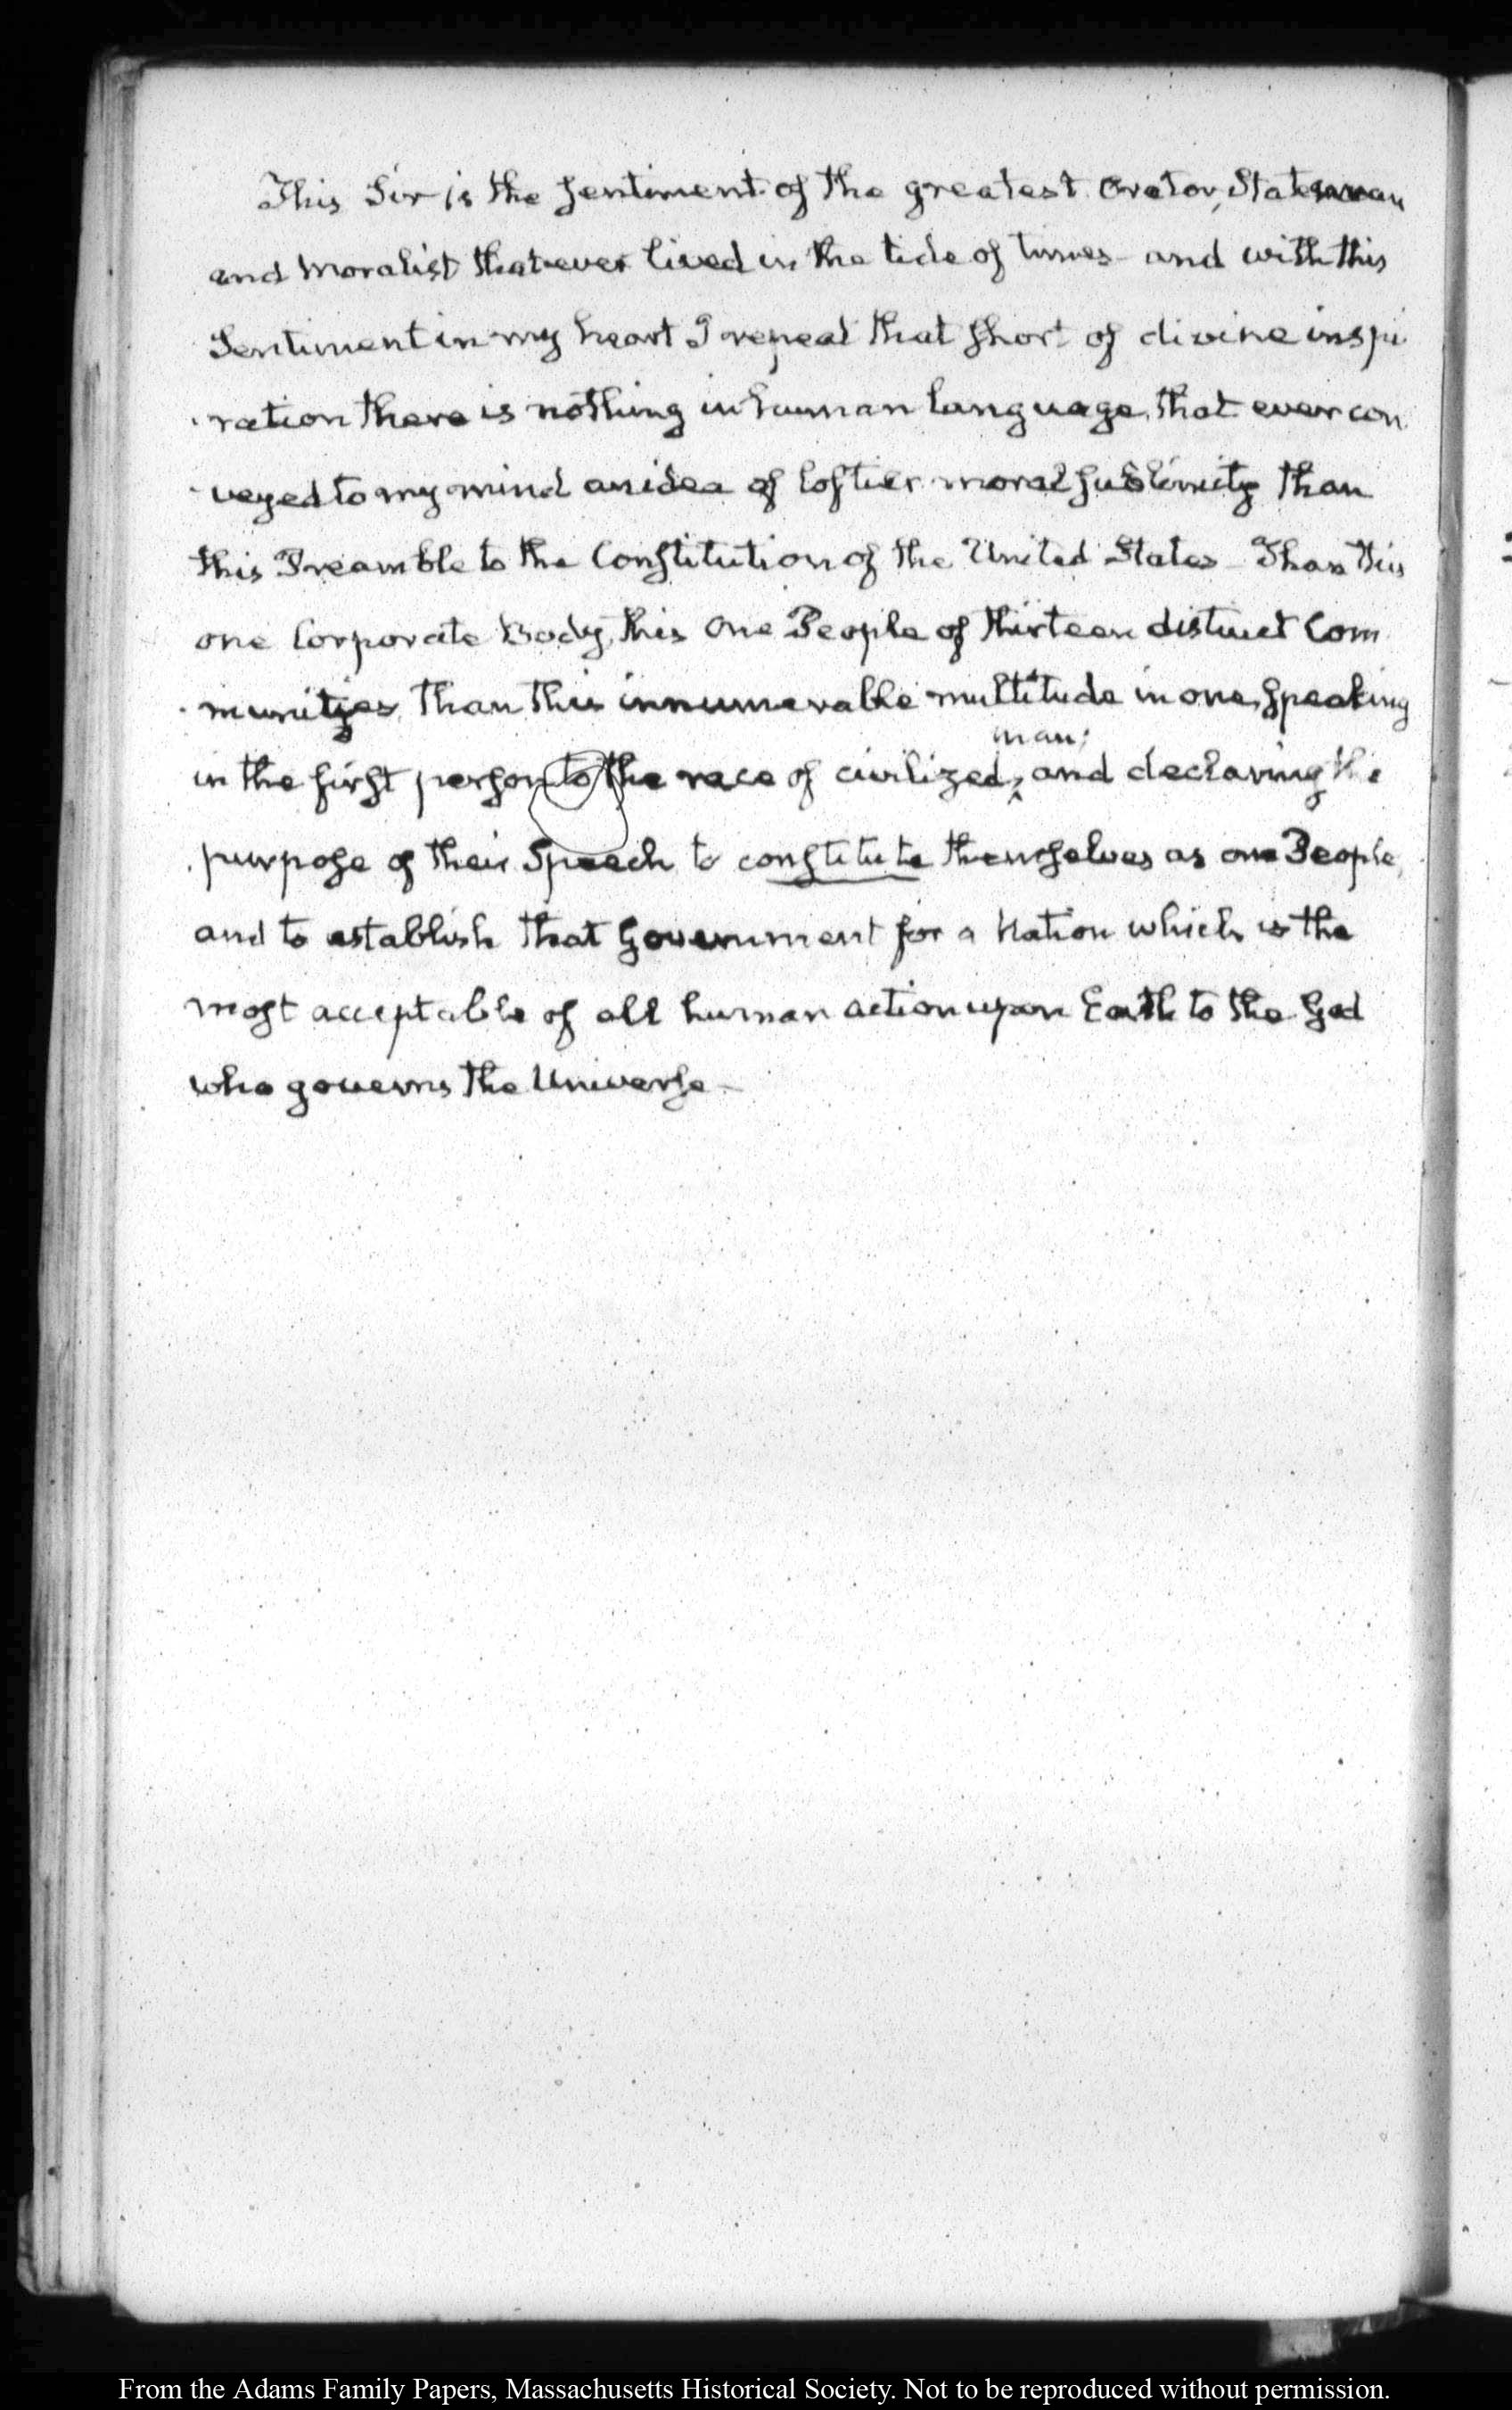 This Sir is the Sentiment of the greatest Orator, Statesman
and Moralist that ever lived in the tide of times - and with this
Sentiment in my heart I repeat that short of divine inspi
ration there is nothing in human language, that ever con
veyed to my mind an idea of loftier moral sublimity than
this Preamble to the Constitution of the United States - Than this
one Corporate Body, this One People of thirteen distinct Com
munities, than this innumerable multitude in one, speaking
man;
in the first person to the race of civilized, and declaring the
purpose of their Speech to constitute themselves as one People,
and to establish that Government for a Nation which is the
most acceptable of all human action upon Earth to the God
who governs the Universe -
From the Adams Family Papers, Massachusetts Historical Society. Not to be reproduced without permission.